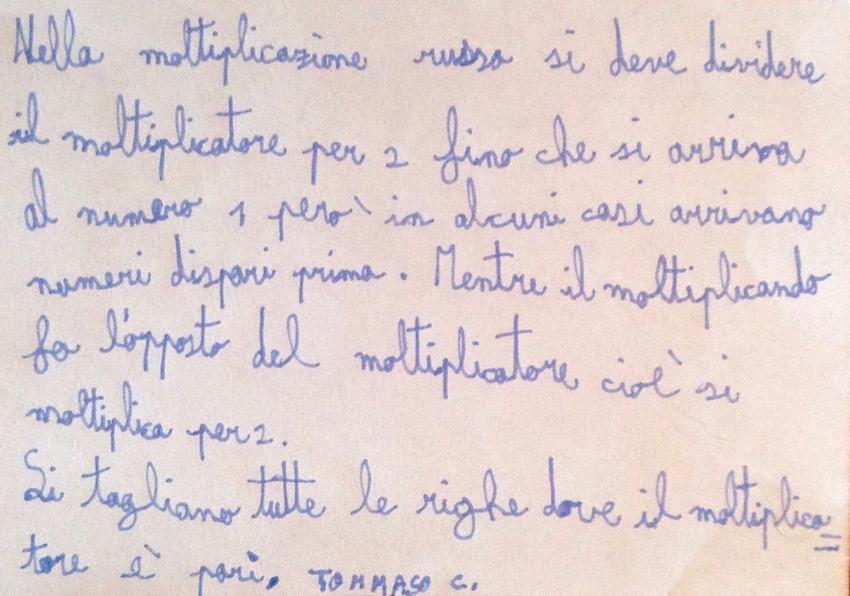 Nella moltiplicazione russa si deve dividere
il moltiplicatore per 2 fino che si arriva
al numero 1 però in alcuni casi arrivano
numeri dispari prima. Mentre il moltiplicando
fa l'opposto del moltiplicatore cioè si
moltiplica per 2.
Si tagliano tutte le righe dove il moltiplica=
tore è pari. TOMMASO C.